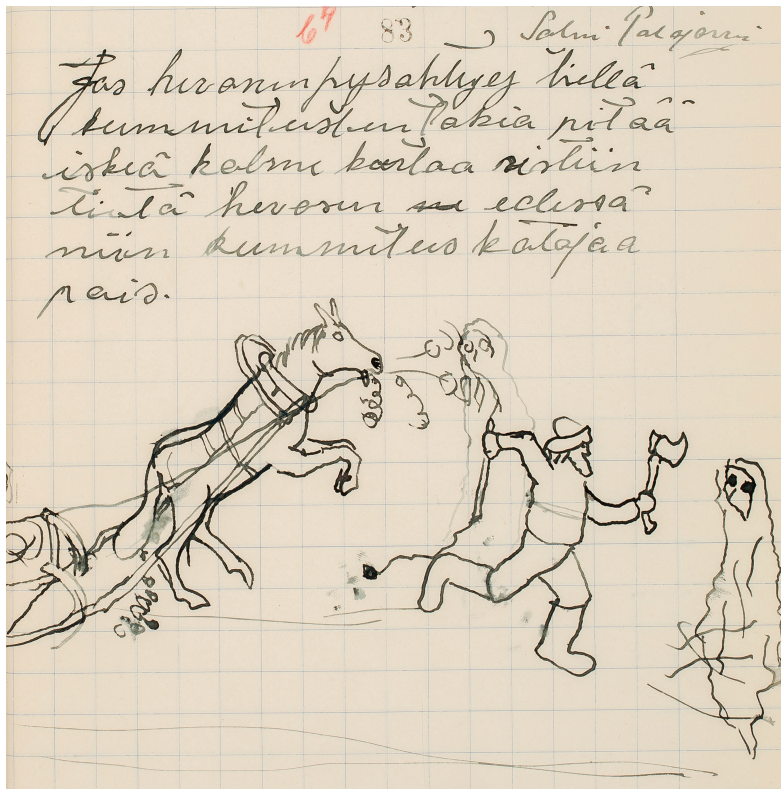 83 Salmi
Jos hevonen pysähtyy tiellä
kummitusten takia pitää
iskeä kolme kertaa ristiin
tietä hevosen edessä
niin kummitus katajaa
pois.